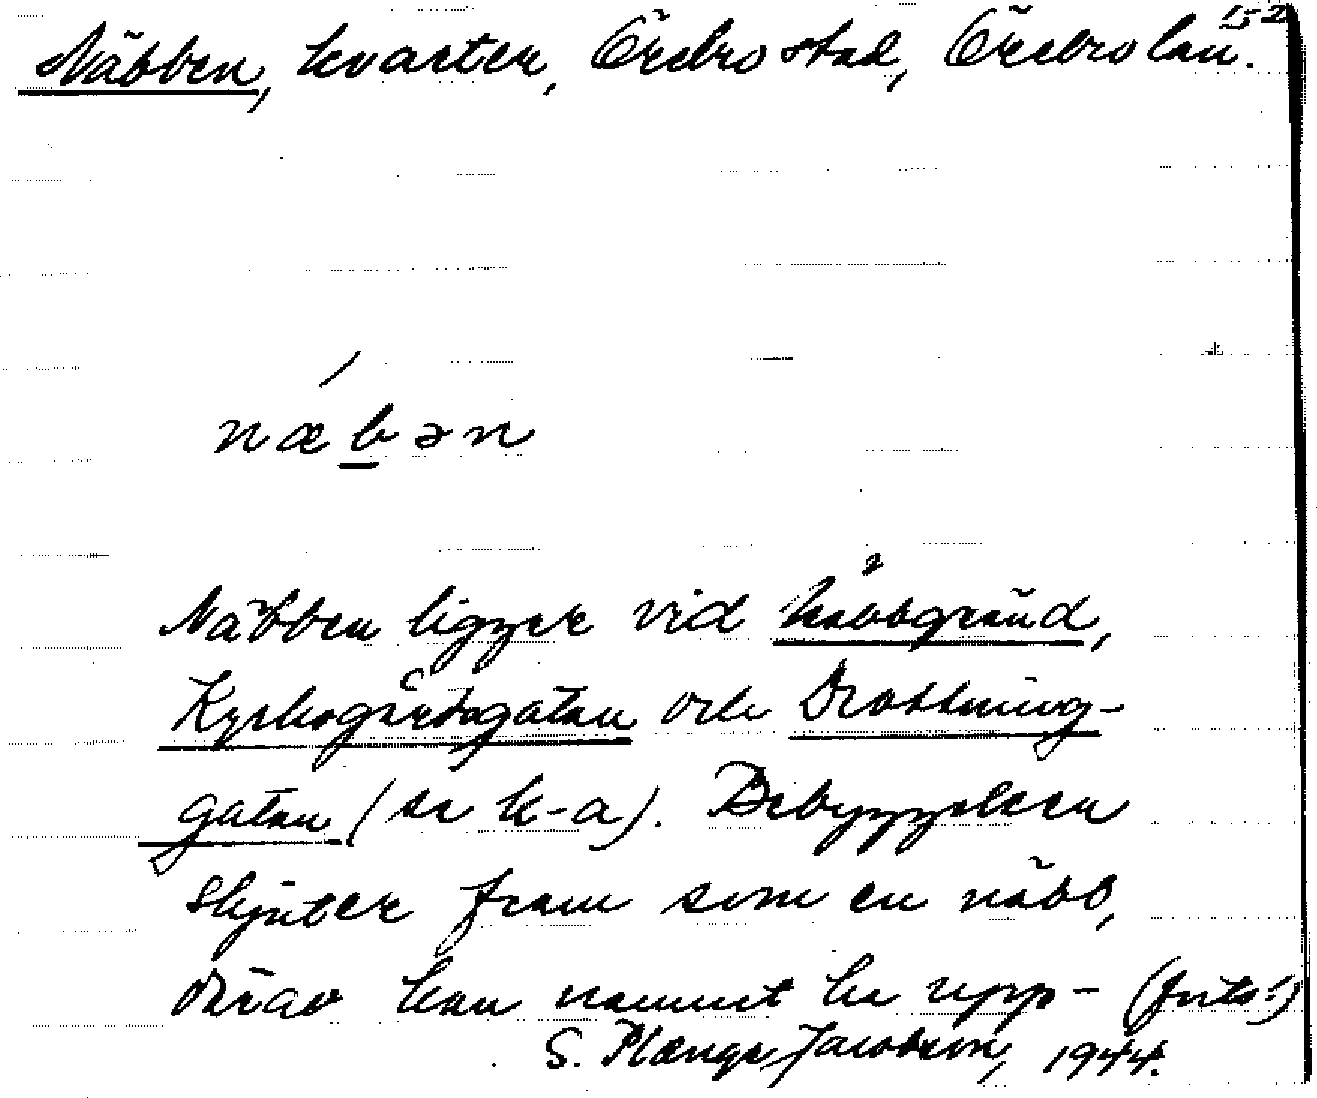 152
Näbben, kvarter, Örebro stad, Örebro län.
næbən
Näbben ligger vid
Kyrkogårdsgatan och Drottning-
gatan (se k-a). Bebyggelsen
skjuter fram som en näbb,
därav kan namnet ha upp- (forts.)
S. Plænge Jacobson, 1944.